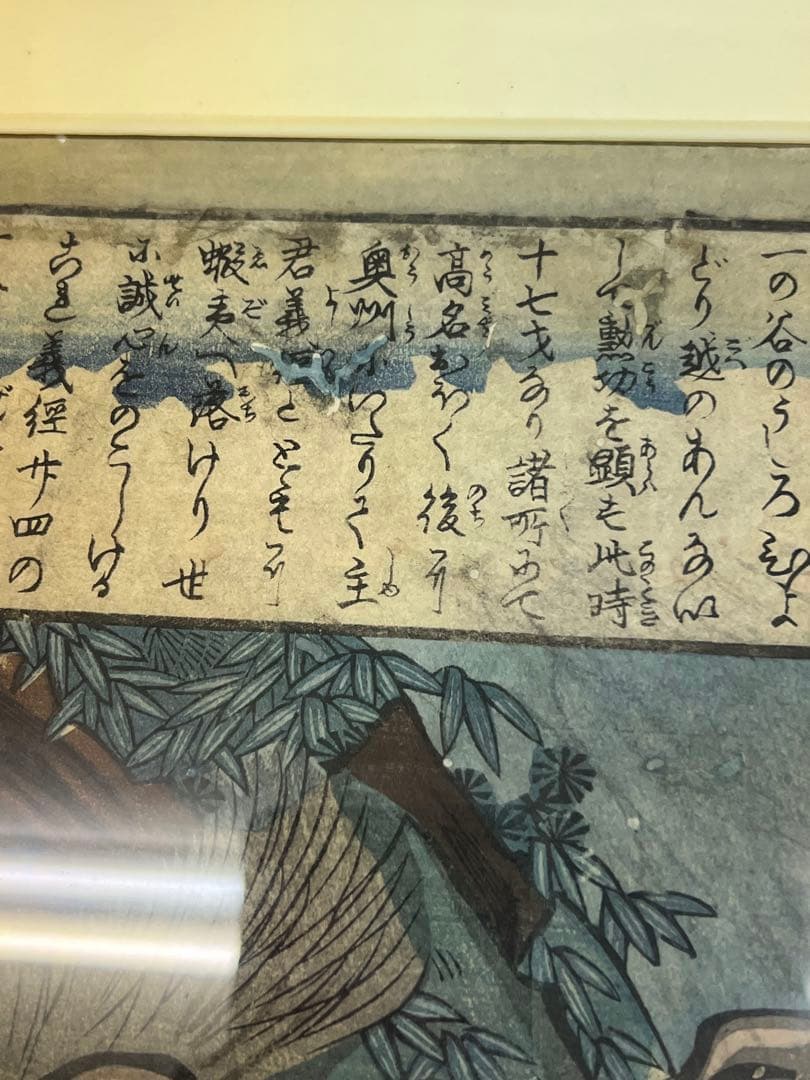 一の谷のうしろひよ
どり越のあんない
して勲功を顕も此時
十七才なり諸所にて
高名おほく後に
奥州にいたりて主
君義経とともに
蝦夷へ落けり世
に誠心をのこしける
これ義經廿四の